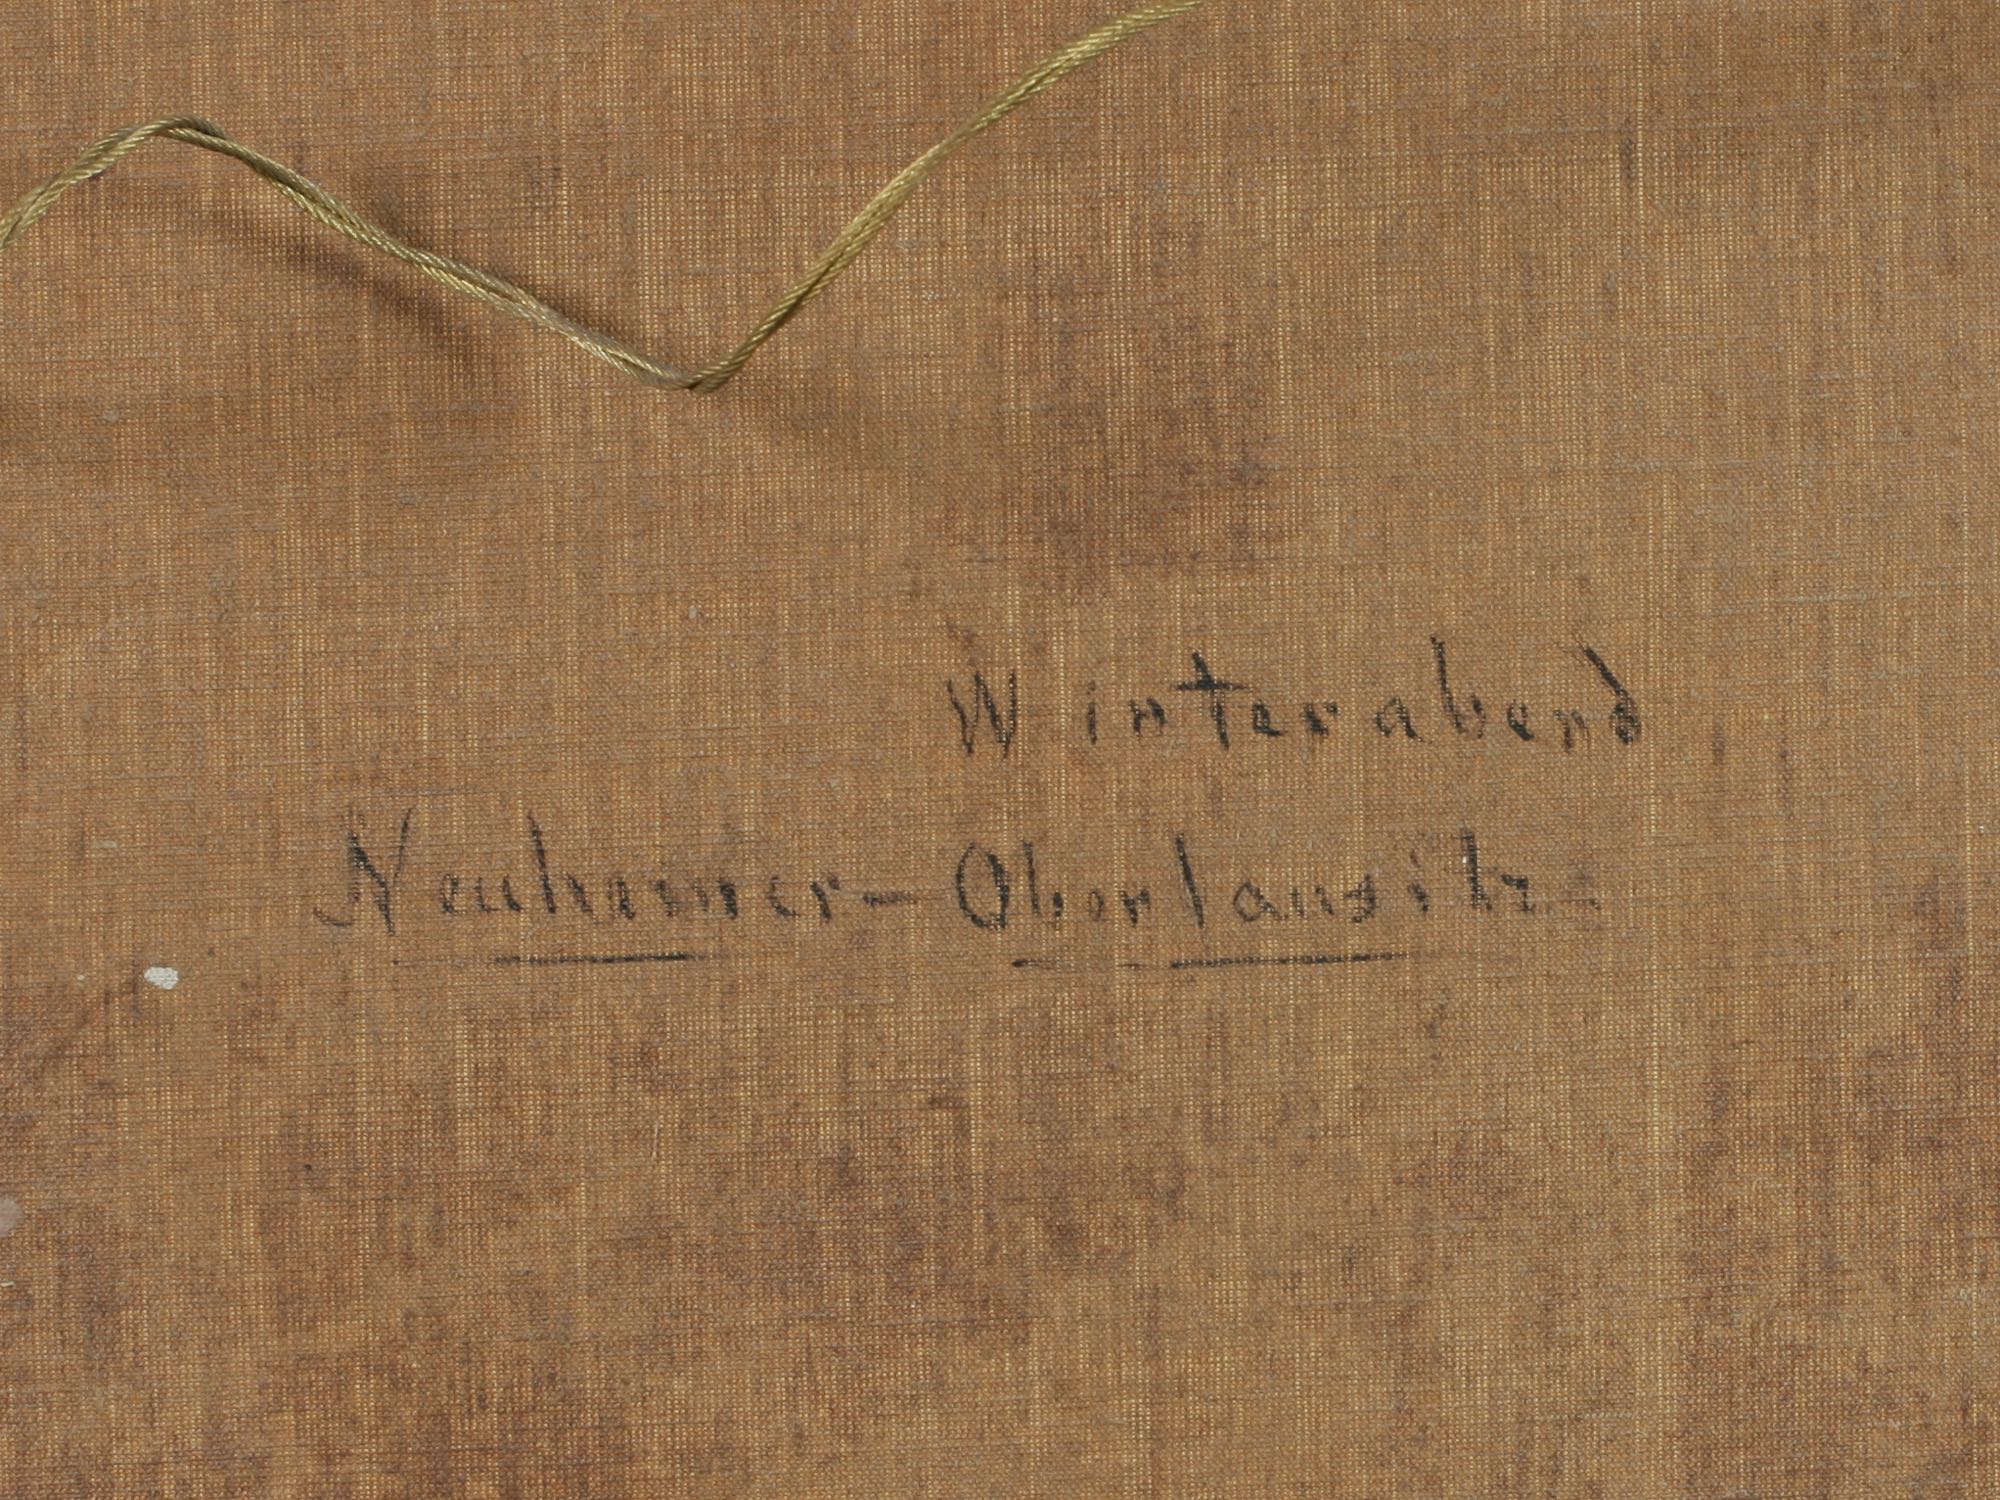 Winterabend
Neuhammer - Oberlausitz.